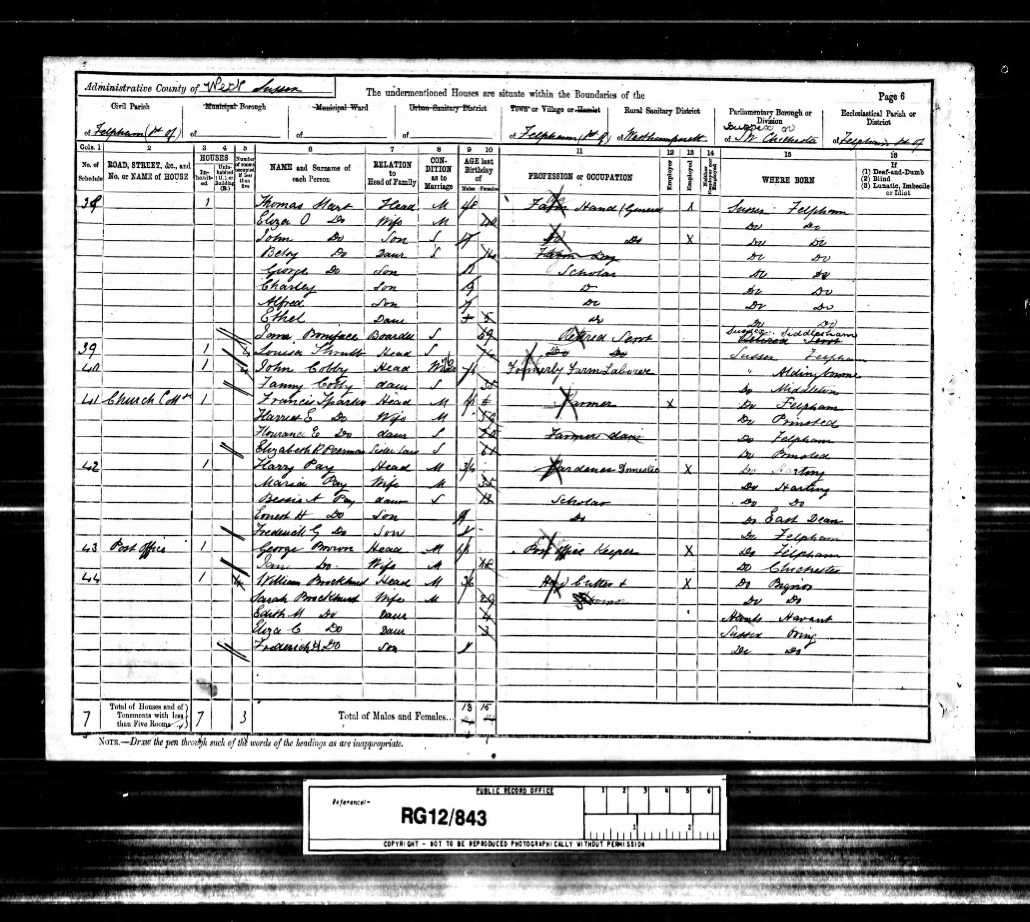 Administrative County of West Sussex
The undermentioned Houses are situate within the Boundaries of the
Page 6
Civil Parish
Municipal Borough
Municipal Ward
Urban Sanitary District
Town or Village or Hamlet
Rural Sanitary District
Parliamentary Borough or Division
Ecclesiastical Parish or District
of Felpham (Pt of)
of
of
of
of Felpham (Pt of)
of Westhampnett
of Sussex or N.W. Chichester
of Felpham Pt of
Cols. 1 2 3 4 5 6 7 8 9 10 11 12 13 14 15 16
No. of Schedule
ROAD, STREET, &c., and No. or NAME of HOUSE
HOUSES
Inhabited
Uninhabited (U.) or Building (B.)
Number of rooms occupied if less than five
NAME and Surname of each Person
RELATION to Head of Family
CONDITION as to Marriage
AGE last Birthday of
Males
Females
PROFESSION or OCCUPATION
Employer
Employed
Neither Employer nor Employed
WHERE BORN
(1) Deaf-and-Dumb
(2) Blind
(3) Lunatic, Imbecile or Idiot
38 1 Thomas Head M 48 Farm Hand General X Sussex Felpham
Eliza O Do Wife M Do Do
John Do Son S 17 Do Do X Do Do
Betsy Do Daur S Do Do
George Do Son 11 Scholar Do Do
Charley Son 9 Do Do Do
Alfred Son 7 Do Do Do
Ethel Daur 5 Do Do Do
Jane Boniface Boarder S 69 Retired Servt Sussex Siddlesham
39 1 4 Louisa Head S Do Do Sussex Felpham
40 1 4 John Cobby Head Formerly Farm Laborer "
Fanny Cobby daur S 35 Do Middleton
41 Church Cott 1 Francis Sparks Head M Farmer X Do Felpham
Harriet E Do Wife M Do Prinsted
Florance E Do daur S 20 Farmer daur Do Felpham
Elizabeth S 61 Do Prinsted
42 1 Harry Pay Head M 36 Gardener Domestic X Do Harting
Maria Pay Wife M 35 Do Harting
Bessie A Pay daur S 13 Scholar Do Do
Ernest H Do Son 9 Do Do East Dean
Frederick G Do Son Do Felpham
43 Post Office 1 George Brown Head M Post Office Keeper X Do Felpham
Jane Do Wife M Do Chichester
44 1 4 William Brockhurst Head M 36 Cutter + X Do Bignor
Sarah Brockhurst Wife M 29 Do Do
Edith M Do Daur 4 Hants Havant
Eliza C Do Daur 3 Sussex Oving
Frederick H Do Son 1 Do Do
7
Total of Houses and of Tenements with less than Five Rooms
7
3
Total of Males and Females...
13 15
NOTE.—Draw the pen through such of the words of the headings as are inappropriate.
PUBLIC RECORD OFFICE
Reference:-
RG12/843
1 2 3 4 5 6
1 2
COPYRIGHT - NOT TO BE REPRODUCED PHOTOGRAPHICALLY WITHOUT PERMISSION